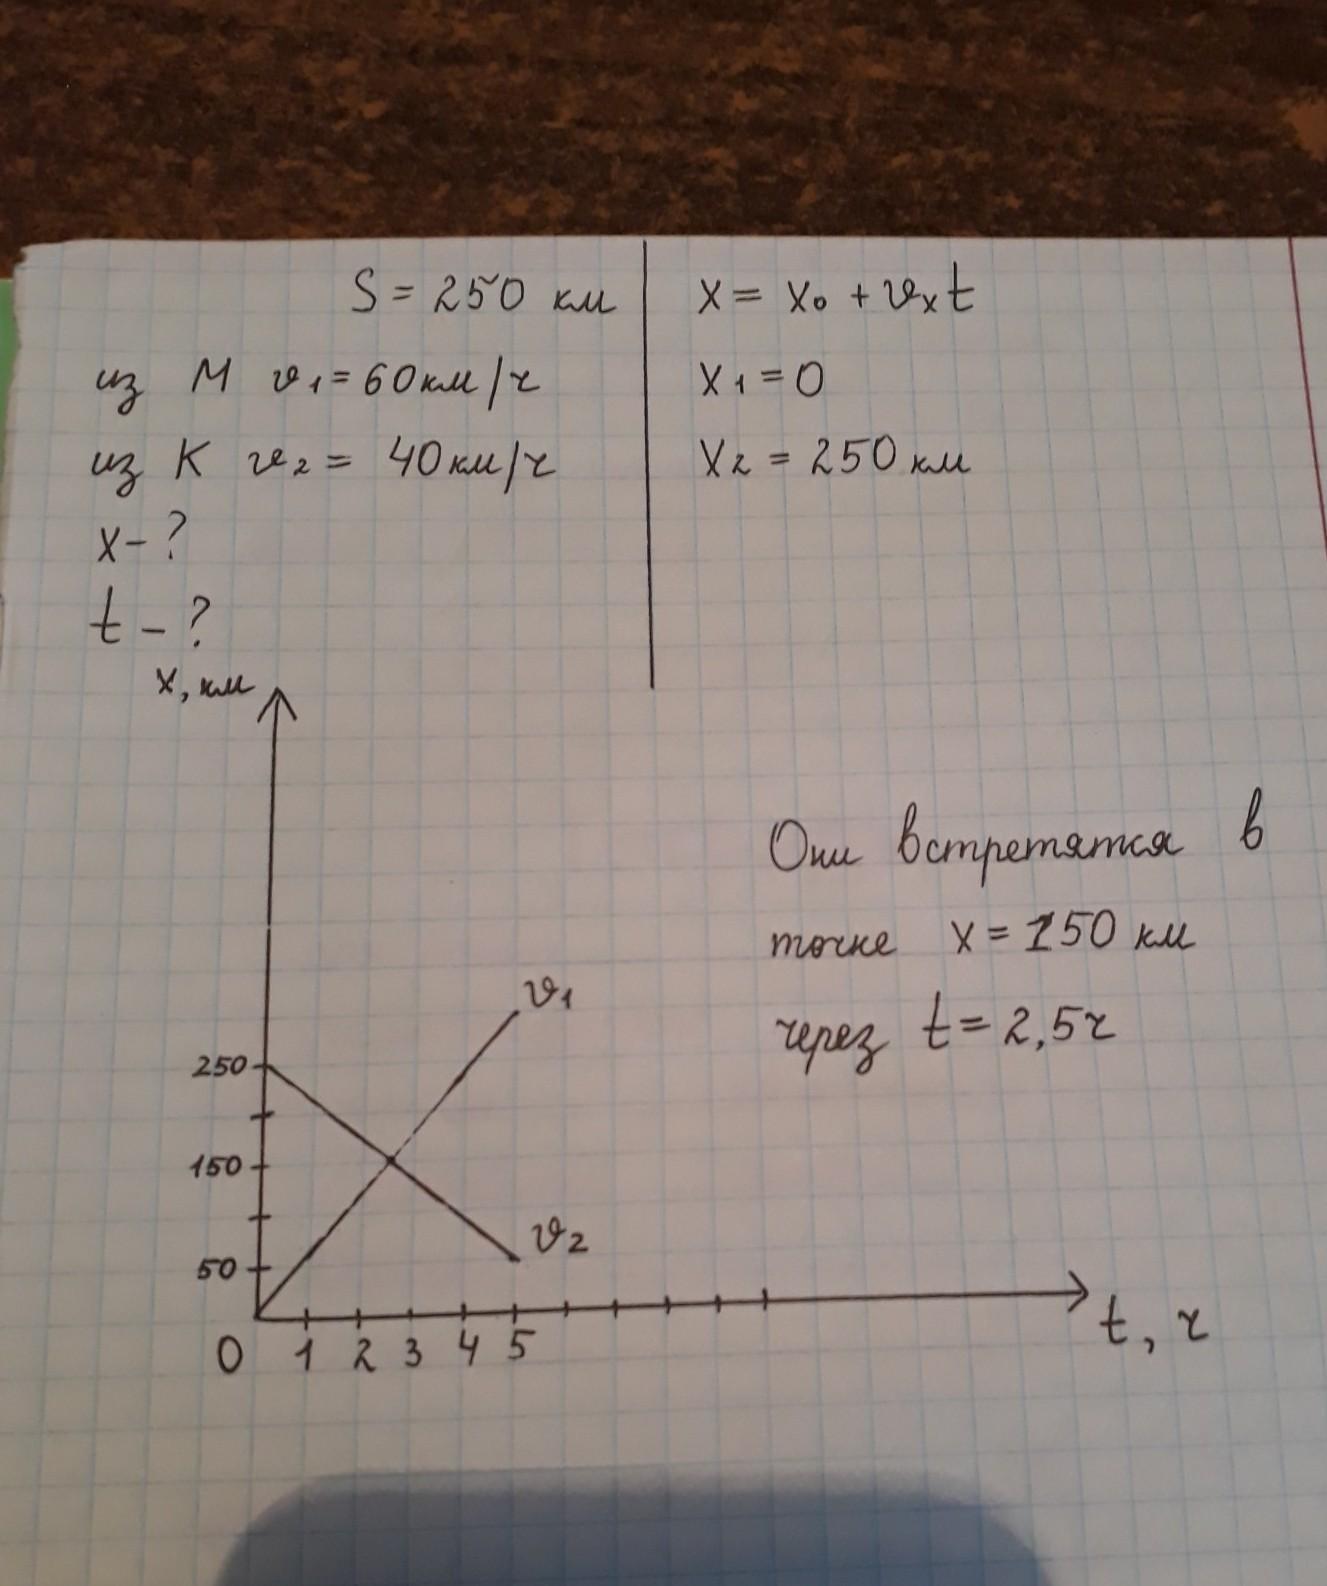 S = 250 км
из М v₁ = 60 км/ч
из К v₂ = 40 км/ч
x - ?
t - ?
x = x₀ + vₓt
x₁ = 0
x₂ = 250 км
x, км
250
150
50
0 1 2 3 4 5
t, ч
v₁
v₂
Они встретятся в
точке x = 150 км
через t = 2,5 ч